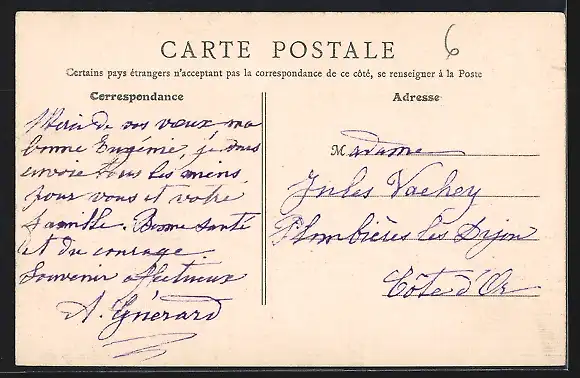 CARTE POSTALE
6
Certains pays étrangers n'acceptant pas la correspondance de ce côté, se renseigner à la Poste
Correspondance
Merci de vos vœux ma
bonne Eugénie, je vous
envoie tous les miens
pour vous et votre
famille. Bonne santé
et du courage
Souvenir affectueux
A. Guérard
Adresse
Madame
Jules Vachey
Plombières les Dijon
Côte d'Or